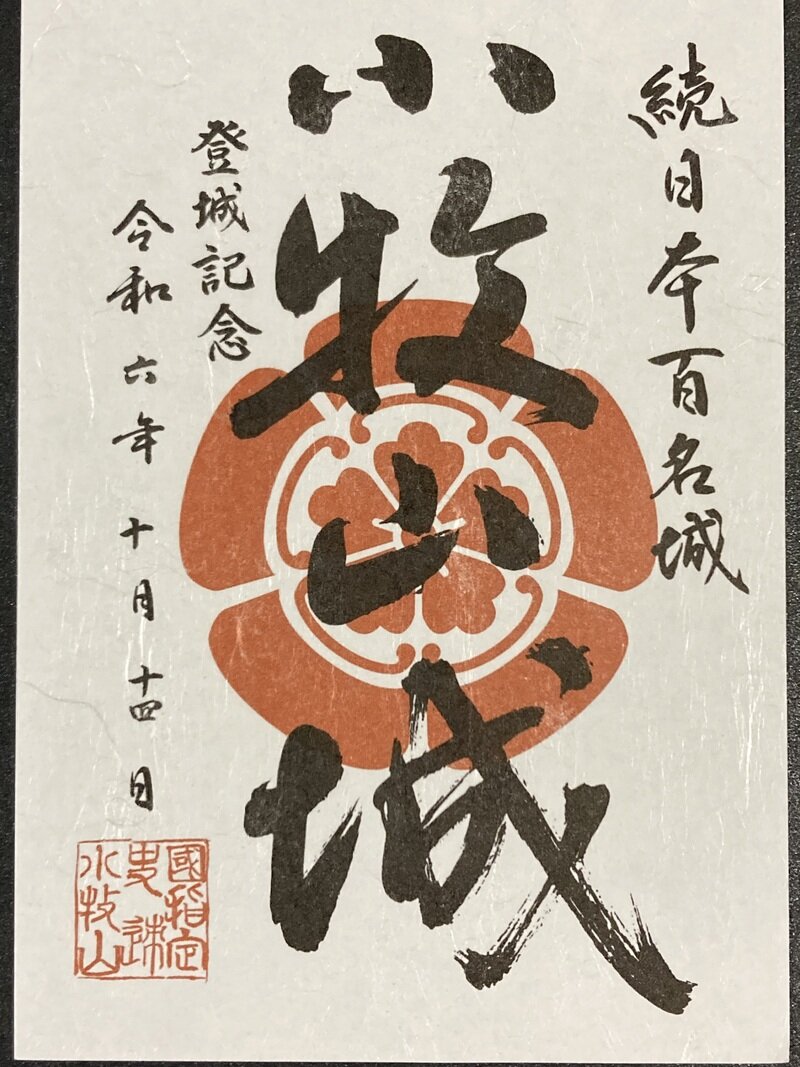 続日本百名城
小牧山城
登城記念
令和六年十月十四日
國指定
史跡
小牧山